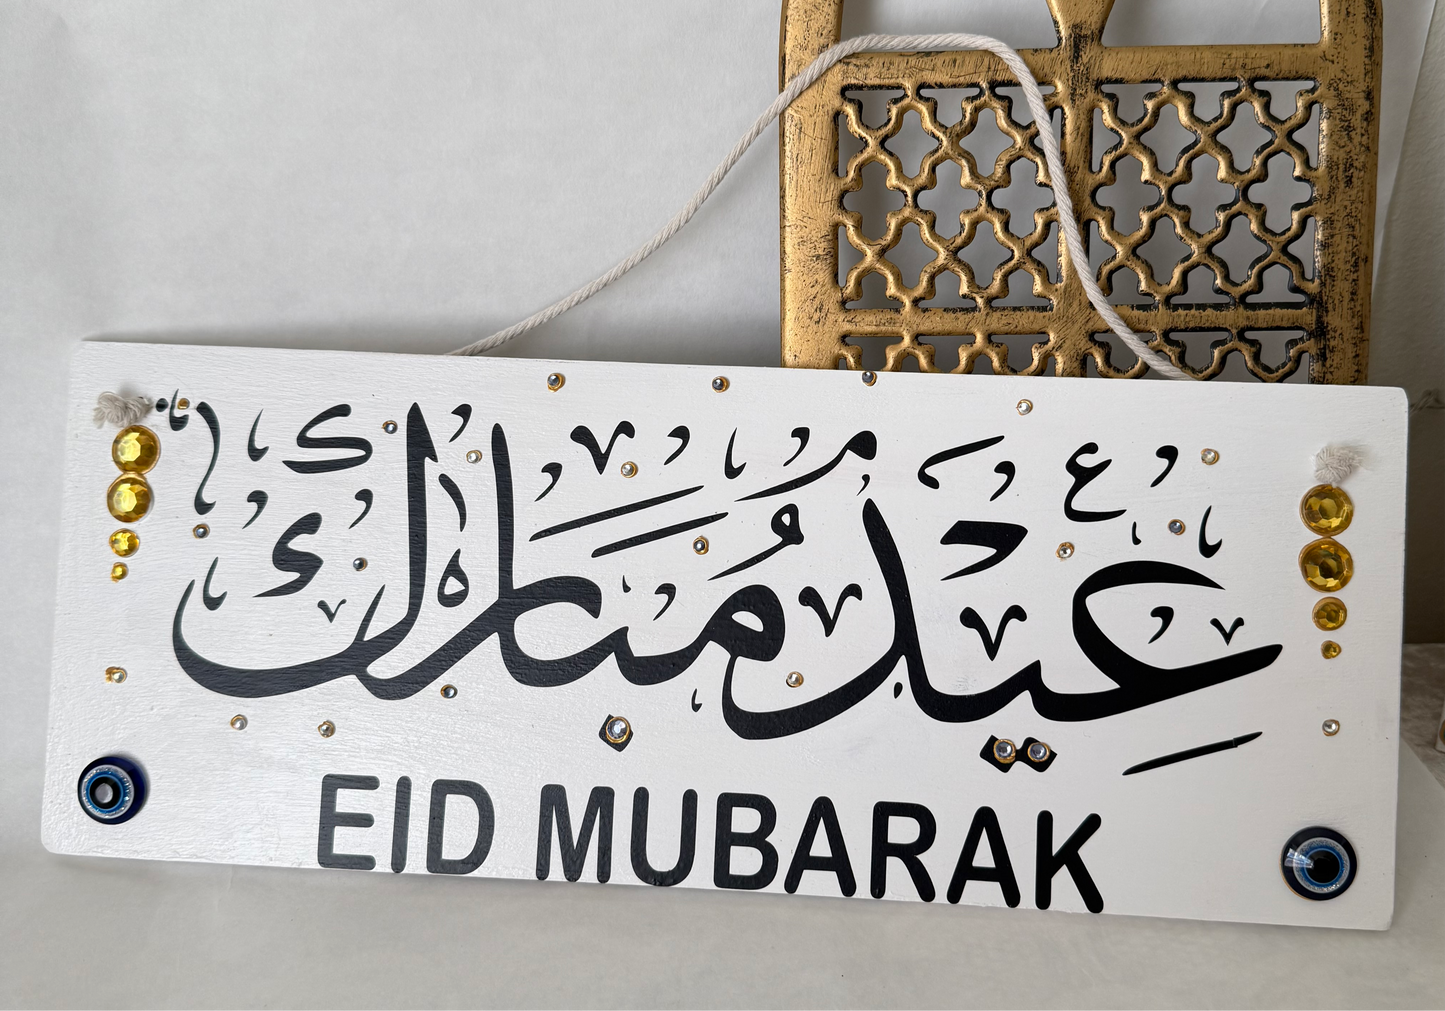 عيد مُبارك
EID MUBARAK